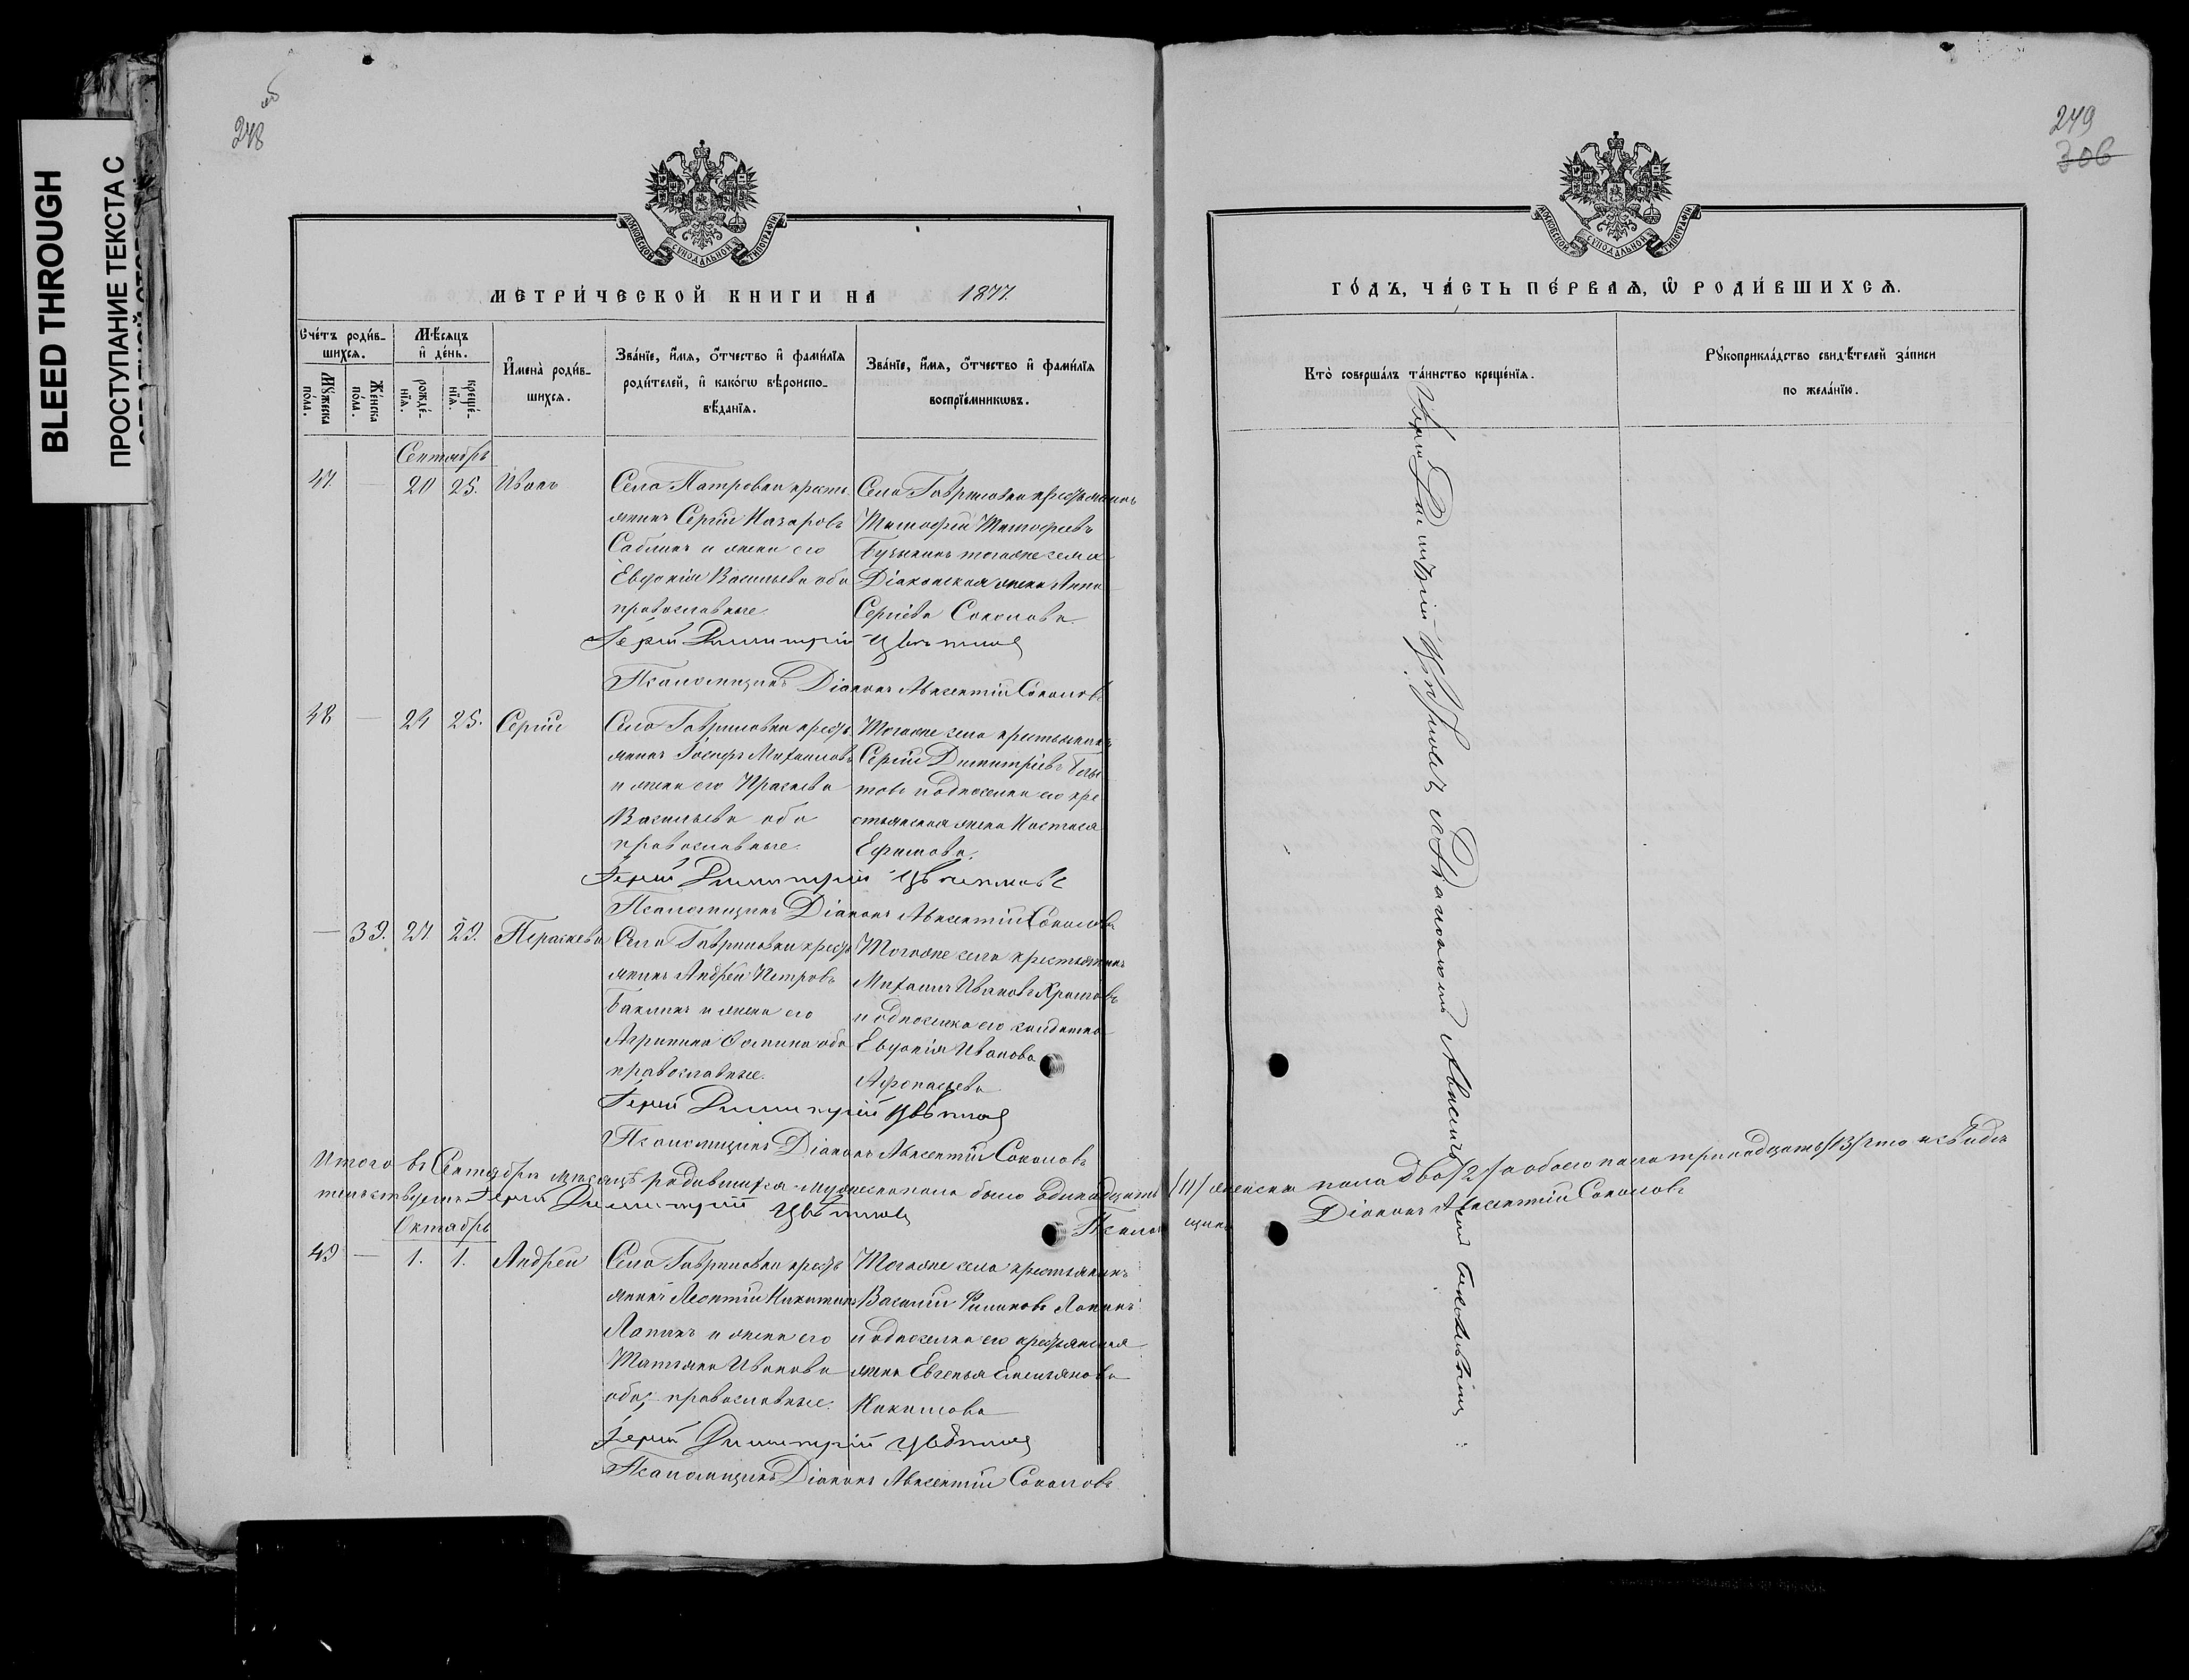 BLEED THROUGH
ПРОСТУПАНИЕ ТЕКСТА С
248 об
249
306
МОСКОВСКОЙ СѴНОДАЛЬНОЙ ТИПОГРАФІИ
МЕТРИ́ЧЕСКОЙ КНИГИ НА 1877.
Сче́тъ роди́в-
шихсѧ.
Мѣ́сѧцъ
и҆ де́нь.
Мꙋ́жеска
по́ла.
Же́нска
по́ла.
рожде́-
нїѧ.
креще́-
нїѧ.
И҆мена̀ роди́в-
шихсѧ.
Зва́нїе, и҆́мѧ, о҆́тчество и҆ фами́лїѧ
роди́телей, и҆ како́гѡ вѣроиспо-
вѣ́данїѧ.
Зва́нїе, и҆́мѧ, о҆́тчество и҆ фами́лїѧ
воспрїе́мникѡвъ.
Сентябрь
47. — 20 25. Иванъ
Села Гавриловки крестьянинъ
янинъ Сергій Назаровъ
Тимофей Тимофеевъ
Саблинъ и жена его
тогоже села
Евдокія Васильева оба
Діаконская жена Анна
православные.
Сергіева Соколова.
Іерей Димитрій Цвѣтков
Псаломщикъ Діаконъ Авксентій Соколовъ
48 — 24 25. Сергій
Села Гавриловки кресть
янинъ Іосифъ Михаиловъ
и жена его
Васильева оба
православные.
Тогоже села крестьянинъ
Сергій Димитріевъ
и его кре
стьянская жена
Ефимова.
Іерей Димитрій Цвѣтковъ
Псаломщикъ Діаконъ Авксентій Соколовъ
— 39. 27. 29. Параскева
Села Гавриловки кресть
янинъ Андрей Петровъ
Баклинъ и жена его
Агрипина Осипина оба
православные.
Тогоже села крестьянинъ
Михаилъ Ивановъ
и его солдатка
Евдокія Иванова
Афонасьева
Іерей Димитрій Цвѣтков
Псаломщикъ Діаконъ Авксентій Соколовъ
Итого въ Сентябрѣ мѣсяцѣ родившихся мужеска пола было одинадцать /11/ женска пола два /2/ а обоего пола тринадцать /13/ что и свидѣ
тельствуемъ Іерей Димитрій Цвѣтковъ
Псаломщикъ Діаконъ Авксентій Соколовъ
Октябрь
49 — 1. 1. Андрей
Села Гавриловки кресть
янинъ Леонтій Никитинъ
Лапинъ и жена его
Татіана Иванова
оба православные.
Тогоже села крестьянинъ
Василій Филиповъ Лапинъ
и его крестьянская
жена Евгенья Емельянова
Іерей Димитрій Цвѣтков
Псаломщикъ Діаконъ Авксентій Соколовъ
МОСКОВСКОЙ СѴНОДАЛЬНОЙ ТИПОГРАФІИ
ГО́ДЪ, ЧА́СТЬ ПЕ́РВАѦ, Ѡ҆ РОДИ́ВШИХСѦ.
Кто̀ соверша́лъ та́инство креще́нїѧ.
Рꙋкоприкла́дство свидѣ́телей за́писи
по жела́нїю.
Іерей Димитрій Цвѣтковъ съ Діакономъ Авксентіемъ Соколовымъ